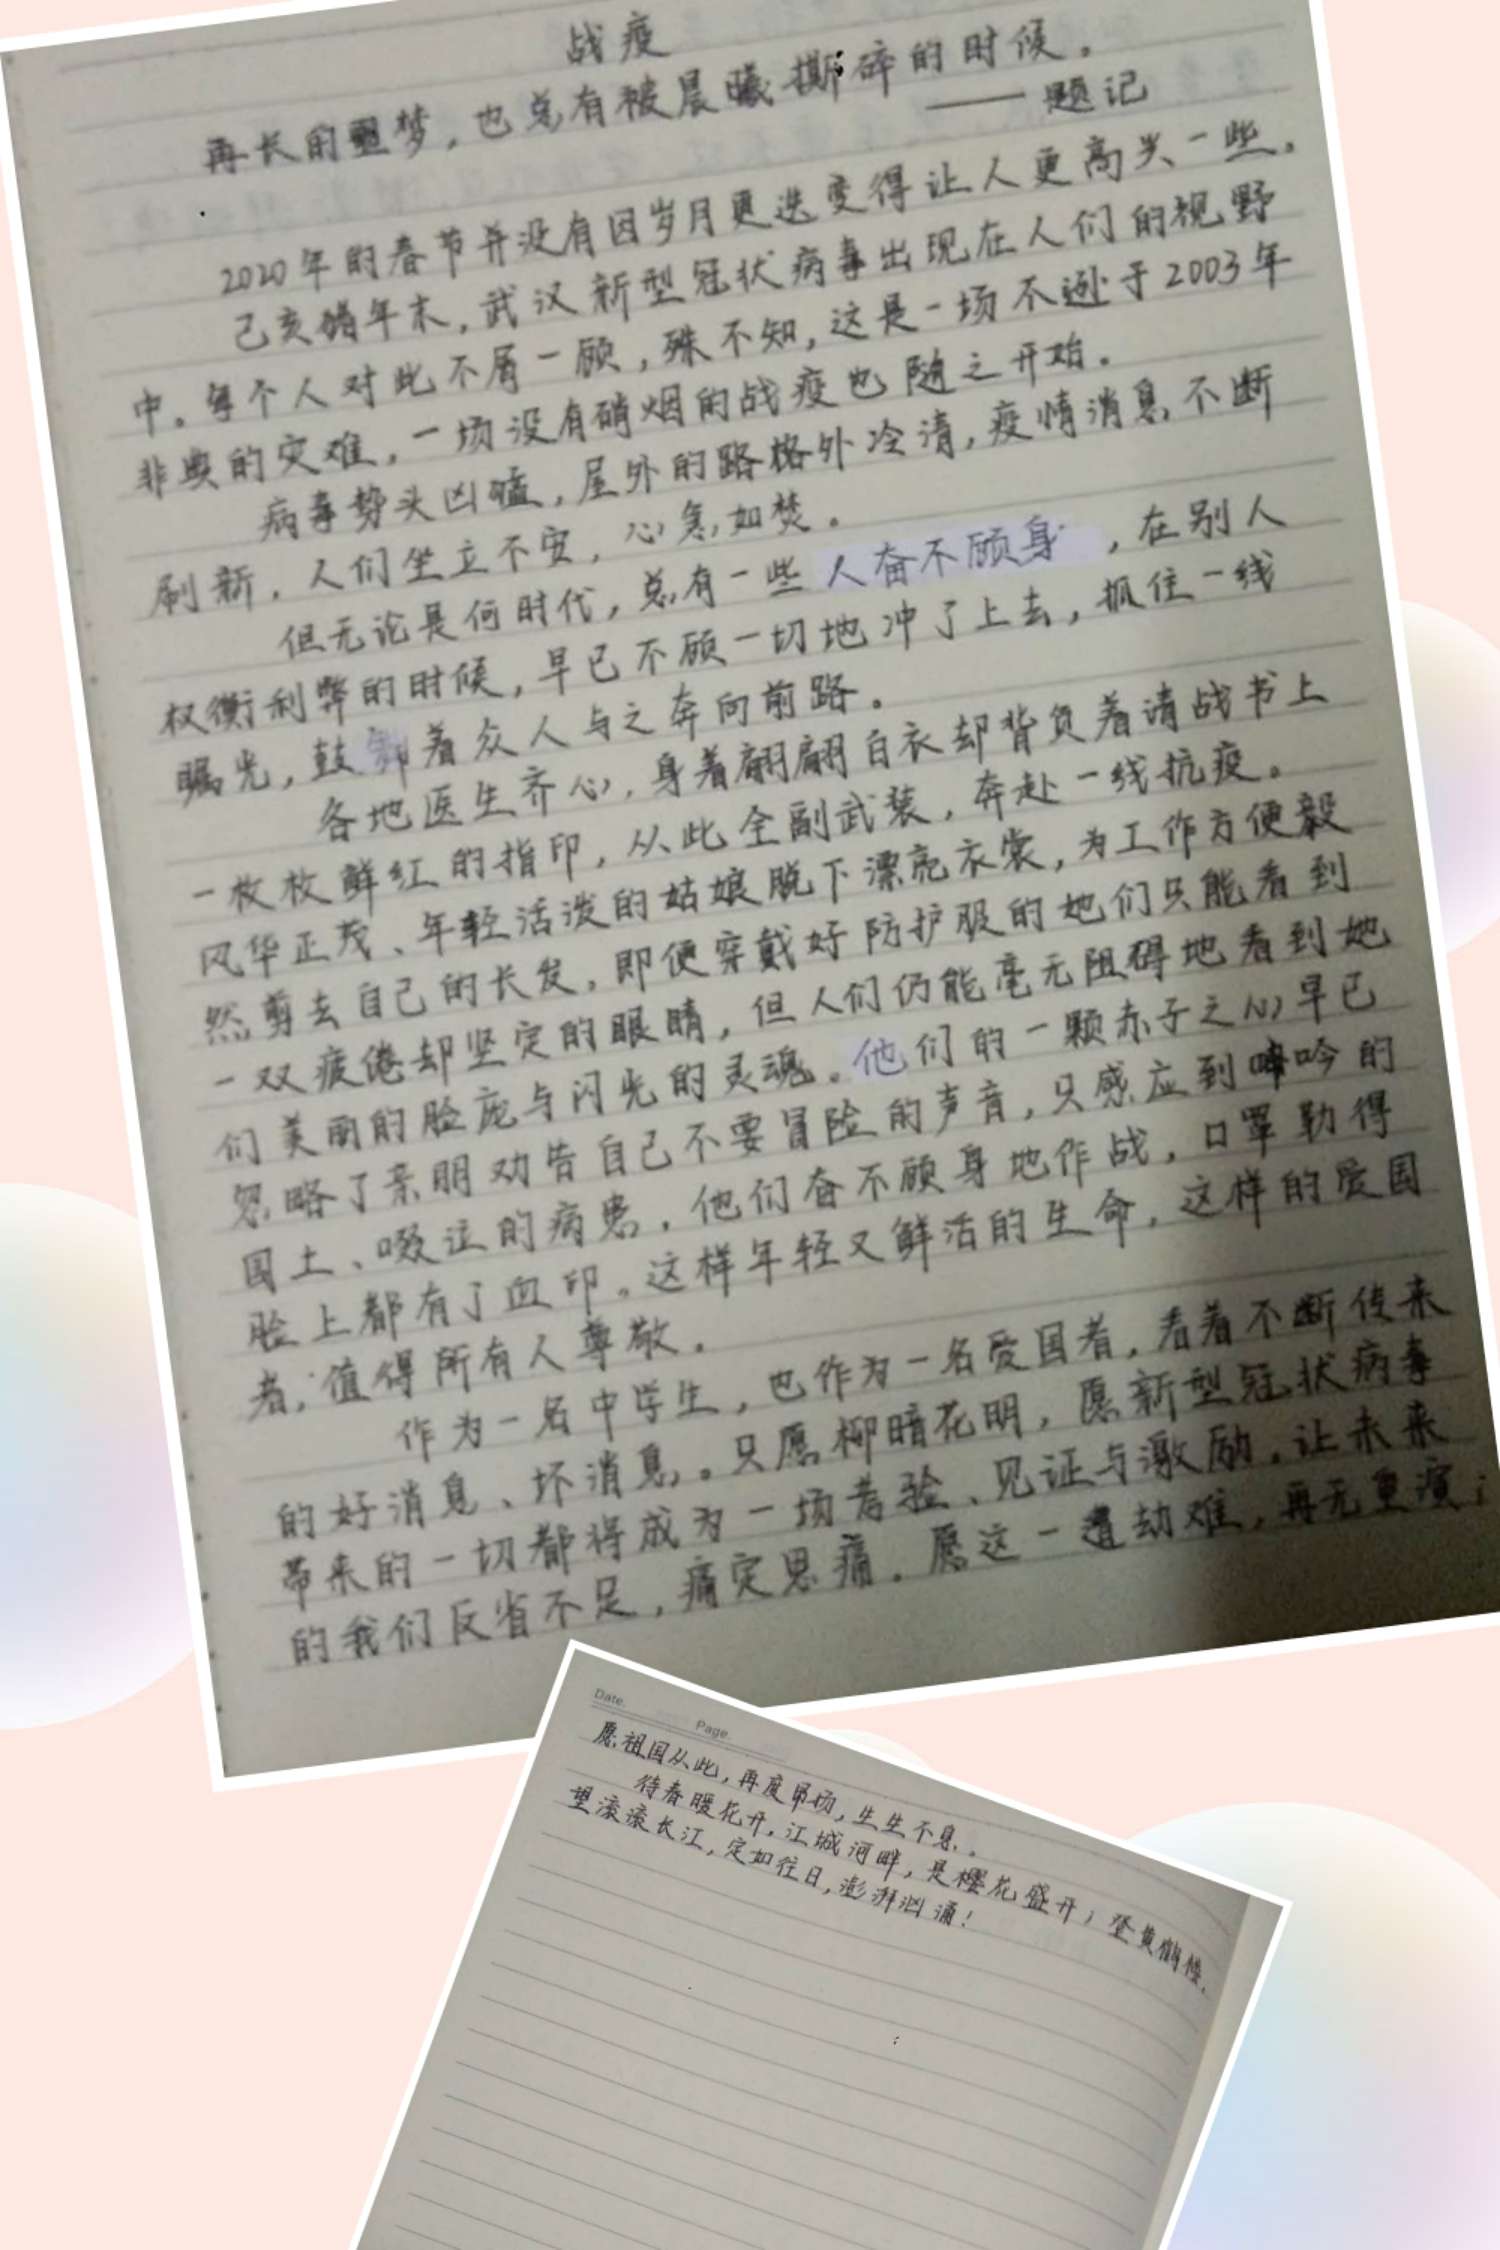 战疫
再长的噩梦，也总有被晨曦撕碎的时候。
——题记
2020年的春节并没有因岁月更迭变得让人更高兴一些。
己亥猪年末，武汉新型冠状病毒出现在人们的视野
中。每个人对此不屑一顾，殊不知，这是一场不逊于2003年
非典的灾难，一场没有硝烟的战疫也随之开始。
病毒势头凶猛，屋外的路格外冷清，疫情消息不断
刷新，人们坐立不安，心急如焚。
但无论是何时代，总有一些人奋不顾身，在别人
权衡利弊的时候，早已不顾一切地冲了上去，抓住一线
曙光，鼓舞着众人与之奔向前路。
各地医生齐心，身着翩翩白衣却背负着请战书上
一枚枚鲜红的指印，从此全副武装，奔赴一线抗疫。
风华正茂、年轻活泼的姑娘脱下漂亮衣裳，为工作方便毅
然剪去自己的长发，即便穿戴好防护服的她们只能看到
一双疲倦却坚定的眼睛，但人们仍能毫无阻碍地看到她
们美丽的脸庞与闪光的灵魂。他们的一颗赤子之心早已
忽略了亲朋劝告自己不要冒险的声音，只感应到呻吟的
国土、啜泣的病患，他们奋不顾身地作战，口罩勒得
脸上都有了血印。这样年轻又鲜活的生命，这样的爱国
者，值得所有人尊敬。
作为一名中学生，也作为一名爱国者，看着不断传来
的好消息、坏消息。只愿柳暗花明，愿新型冠状病毒
带来的一切都将成为一场考验、见证与激励，让未来
的我们反省不足，痛定思痛。愿这一遭劫难，再无重演；
Date.
Page.
愿祖国从此，再度昂扬，生生不息。
待春暖花开，江城河畔，是樱花盛开；登黄鹤楼，
望滚滚长江，定如往日，澎湃汹涌！